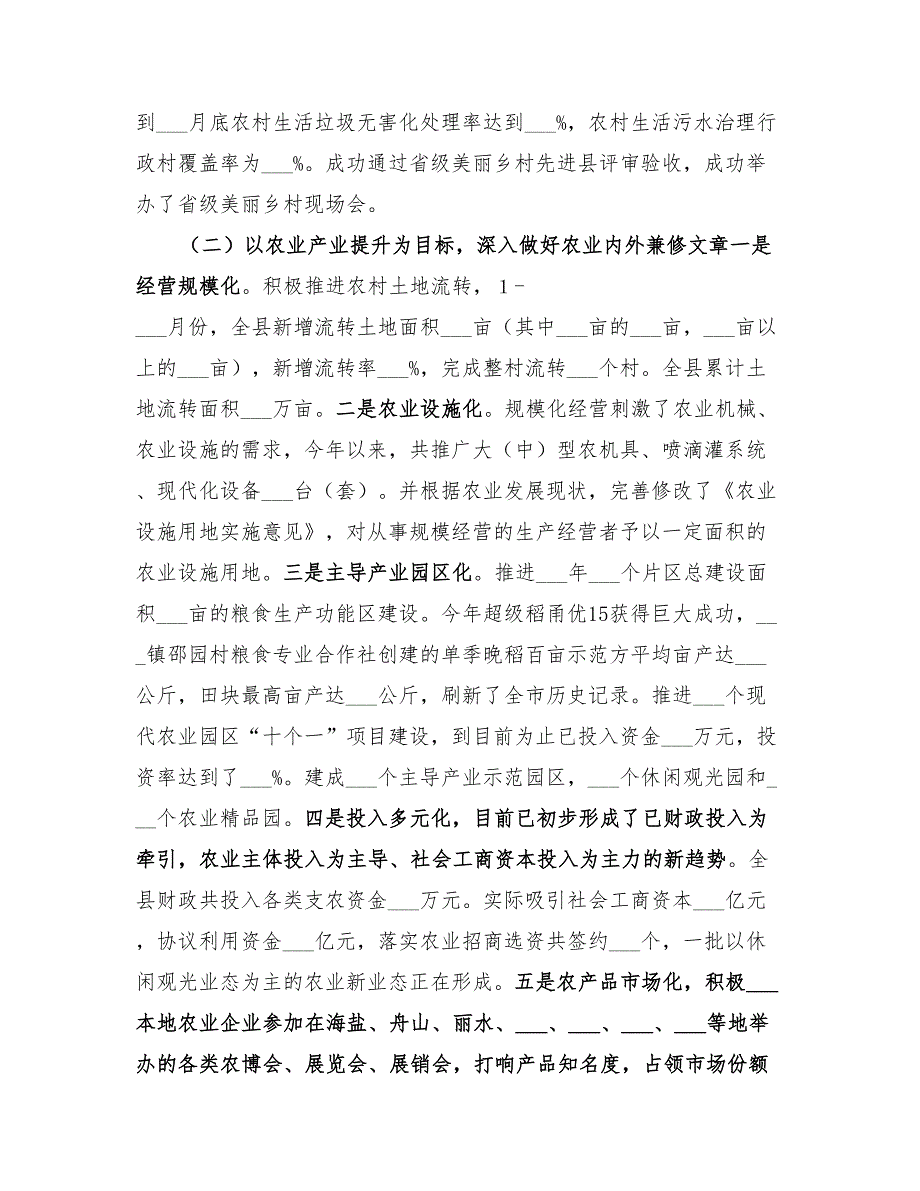 到___月底农村生活垃圾无害化处理率达到___%，农村生活污水治理行
政村覆盖率为___%。成功通过省级美丽乡村先进县评审验收，成功举
办了省级美丽乡村现场会。
（二）以农业产业提升为目标，深入做好农业内外兼修文章一是
经营规模化。积极推进农村土地流转，1-
___月份，全县新增流转土地面积___亩（其中___亩的___亩，___亩以
上的___亩），新增流转率___%，完成整村流转___个村。全县累计土
地流转面积___万亩。二是农业设施化。规模化经营刺激了农业机械、
农业设施的需求，今年以来，共推广大（中）型农机具、喷滴灌系统
、现代化设备___台（套）。并根据农业发展现状，完善修改了《农业
设施用地实施意见》，对从事规模经营的生产经营者予以一定面积的
农业设施用地。三是主导产业园区化。推进___年___个片区总建设面
积___亩的粮食生产功能区建设。今年超级稻甬优15获得巨大成功，__
_镇邵园村粮食专业合作社创建的单季晚稻百亩示范方平均亩产达___
公斤，田块最高亩产达___公斤，刷新了全市历史记录。推进___个现
代农业园区“十个一”项目建设，到目前为止已投入资金___万元，投
资率达到了___%。建成___个主导产业示范园区，___个休闲观光园和_
__个农业精品园。四是投入多元化，目前已初步形成了已财政投入为
牵引，农业主体投入为主导、社会工商资本投入为主力的新趋势。全
县财政共投入各类支农资金___万元。实际吸引社会工商资本___亿元
，协议利用资金___亿元，落实农业招商选资共签约___个，一批以休
闲观光业态为主的农业新业态正在形成。五是农产品市场化，积极___
本地农业企业参加在海盐、舟山、丽水、___、___、___、___等地举
办的各类农博会、展览会、展销会，打响产品知名度，占领市场份额